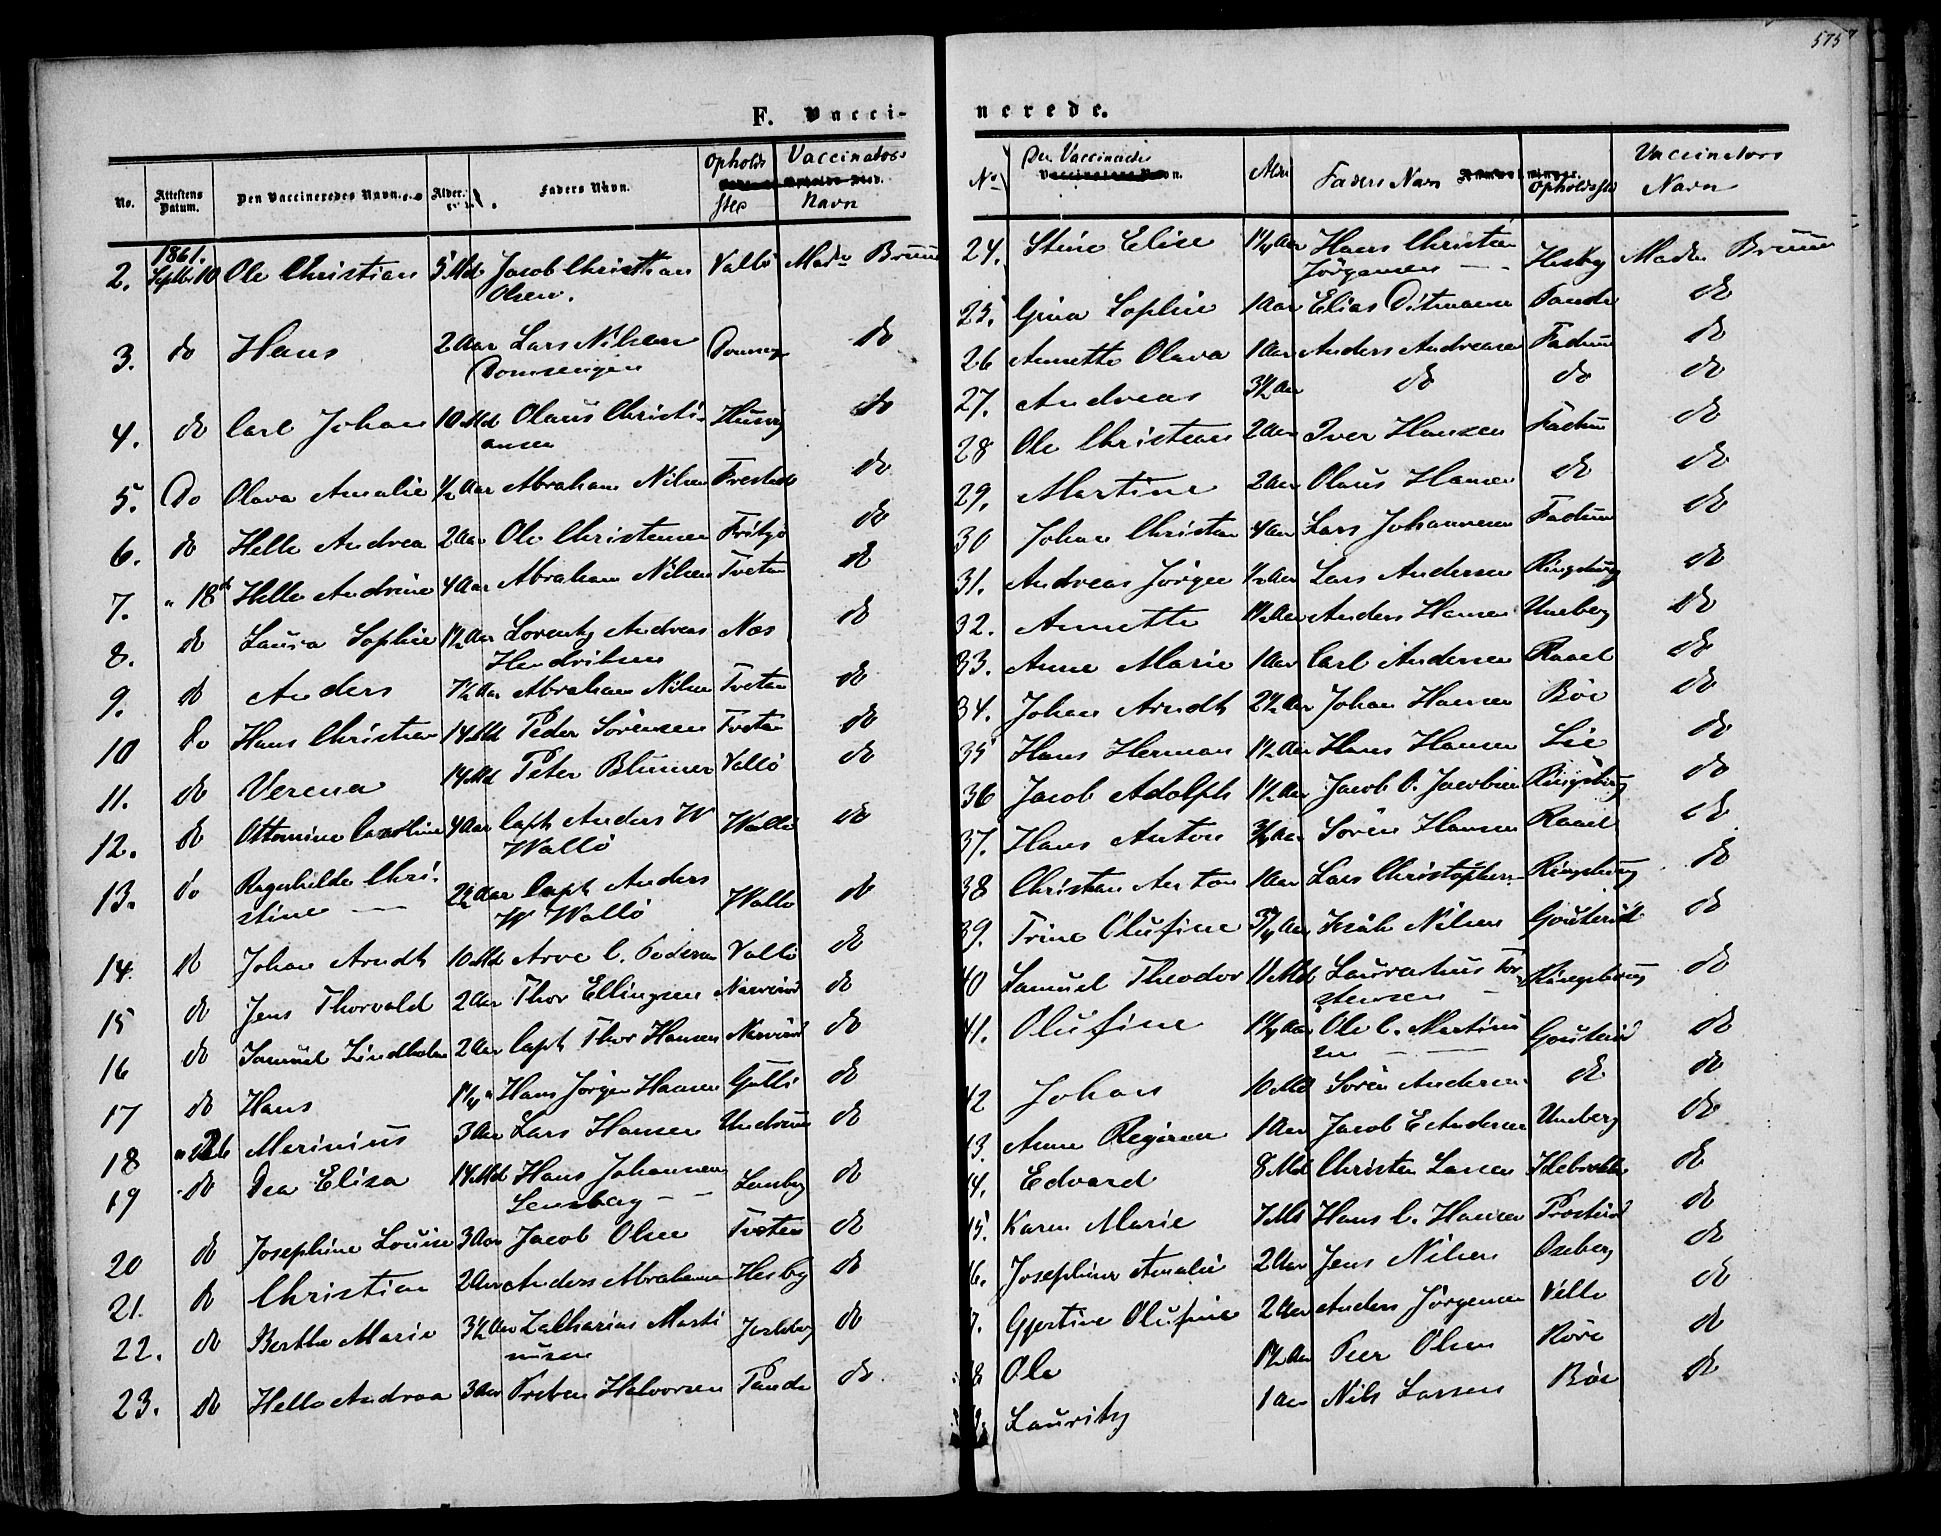 575
F. Vacci-
No. Attestens Datum. Den Vaccineredes Navn. Alder. Faders Navn. Opholds sted Vaccinators Navn
1861.
2. Septbr 10 Ole Christian 5 Md Jacob Christian Vallö Madm Bruun
Olsen.
3. do Hans 2 Aar Lars Nilsen do
Domsengen
4. do Carl Johan 10 Md Olaus Christi- Husvig do
ansen
5. Do Olava Amalie ½ Aar Abraham Nilsen do
6. do Helle Andrea 2 Aar Ole Christensen do
7. " 18de Helle Andrine 4 Aar Abraham Nilsen Tveten do
8. do Laura Sophie 1½ Aar Lorentz Andreas Næs do
Hendriksen
9. do Anders 7½ Aar Abraham Nilsen Tveten do
10 Do Hans Christian 14 Md Peder Sörensen Tveten do
11. do Verena 14 Md Peter Blumer Vallö do
12. do Ottomine Caroline 4 Aar Capt Anders W Wallö do
Wallö
13. do Ragnhilde Chri- 2½ Aar Capt Anders Wallö do
stine W Wallö
14 do Johan Arndt 10 Md Arve C. Pedersen Vallö do
15 do Jens Thorvald 2 Aar Thor Ellingsen Narverød do
16 do Samuel Lindholm 2 Aar Capt Thor Hansen Narverød do
17 do Hans 1¼ " Hans Jörgen Hansen do
18 " 26 Marinius 3 Aar Lars Hansen Undrum do
19 do Dea Elisa 14 Md Hans Johannsen do
20 do Josephine Louise 3 Aar Jacob Olsen Tveten do
21. do Christian 2 Aar Anders Abrahamsen Hesby do
22. do Berthe Marie 3½ Aar Zacharias Marti Jarlsberg do
nusen
23. do Helle Andrea 3 Aar Preben Halvorsen Tande do
nerede.
No Den Vaccinerede Alder Faders Navn Opholdssted Vaccinators Navn
24. Stine Elise 1¼ Aar Hans Christian Hesby Madm Bruun
Jörgensen
25. Gina Sophie 1 Aar Elias Ditmann Tande do
26 Annette Olava 1 Aar Anders Andreasen Fadum do
27. Andreas 3½ Aar do do do
28 Ole Christian 2 Aar Iver Hansen Fadum do
29. Martine 2 Aar Olaus Hansen do do
30 Johan Christian 4 Aar Lars Johannesen Fadum do
31. Andreas Jörgen ½ Aar Lars Andersen Ringshaug do
32. Annette 1½ Aar Anders Hansen Uneberg do
33. Anne Marie 1 Aar Carl Andersen Raael do
34. Johan Arndt 2½ Aar Johan Hansen Böe do
35 Hans Herman 1½ Aar Hans Hansen Lie do
36 Jacob Adolph 1½ Aar Jacob O. Jacobsen Ringshaug do
37. Hans Anton ¾ Aar Sören Hansen Raael do
38 Christian Anton 1 Aar Lars Christophersen Ringshaug do
39. Trine Olufine 5/4 Aar Isak Nilsen Gouterød do
40 Samuel Theodor 11 Md Laurentius Tor- Ringshaug do
stensen
41. Olufine 1¼ Aar Ole C. Martins Gouterød do
en
42 Johan 10 Md Sören Andersen do do
3. Anne Regine 1 Aar Jacob E Andersen Uneberg do
4. Edvard 8 Md Christen Larsen do
5. Karen Marie 7 Md Hans C. Hansen do
6. Josephine Amalie 2 Aar Jens Nilsen Oseberg do
7. Gjertine Olufine 2 Aar Anders Jörgensen Velle do
8 Ole 1½ Aar Peer Olsen Röre do
Lauritz 1 Aar Nils Larsen Böe do